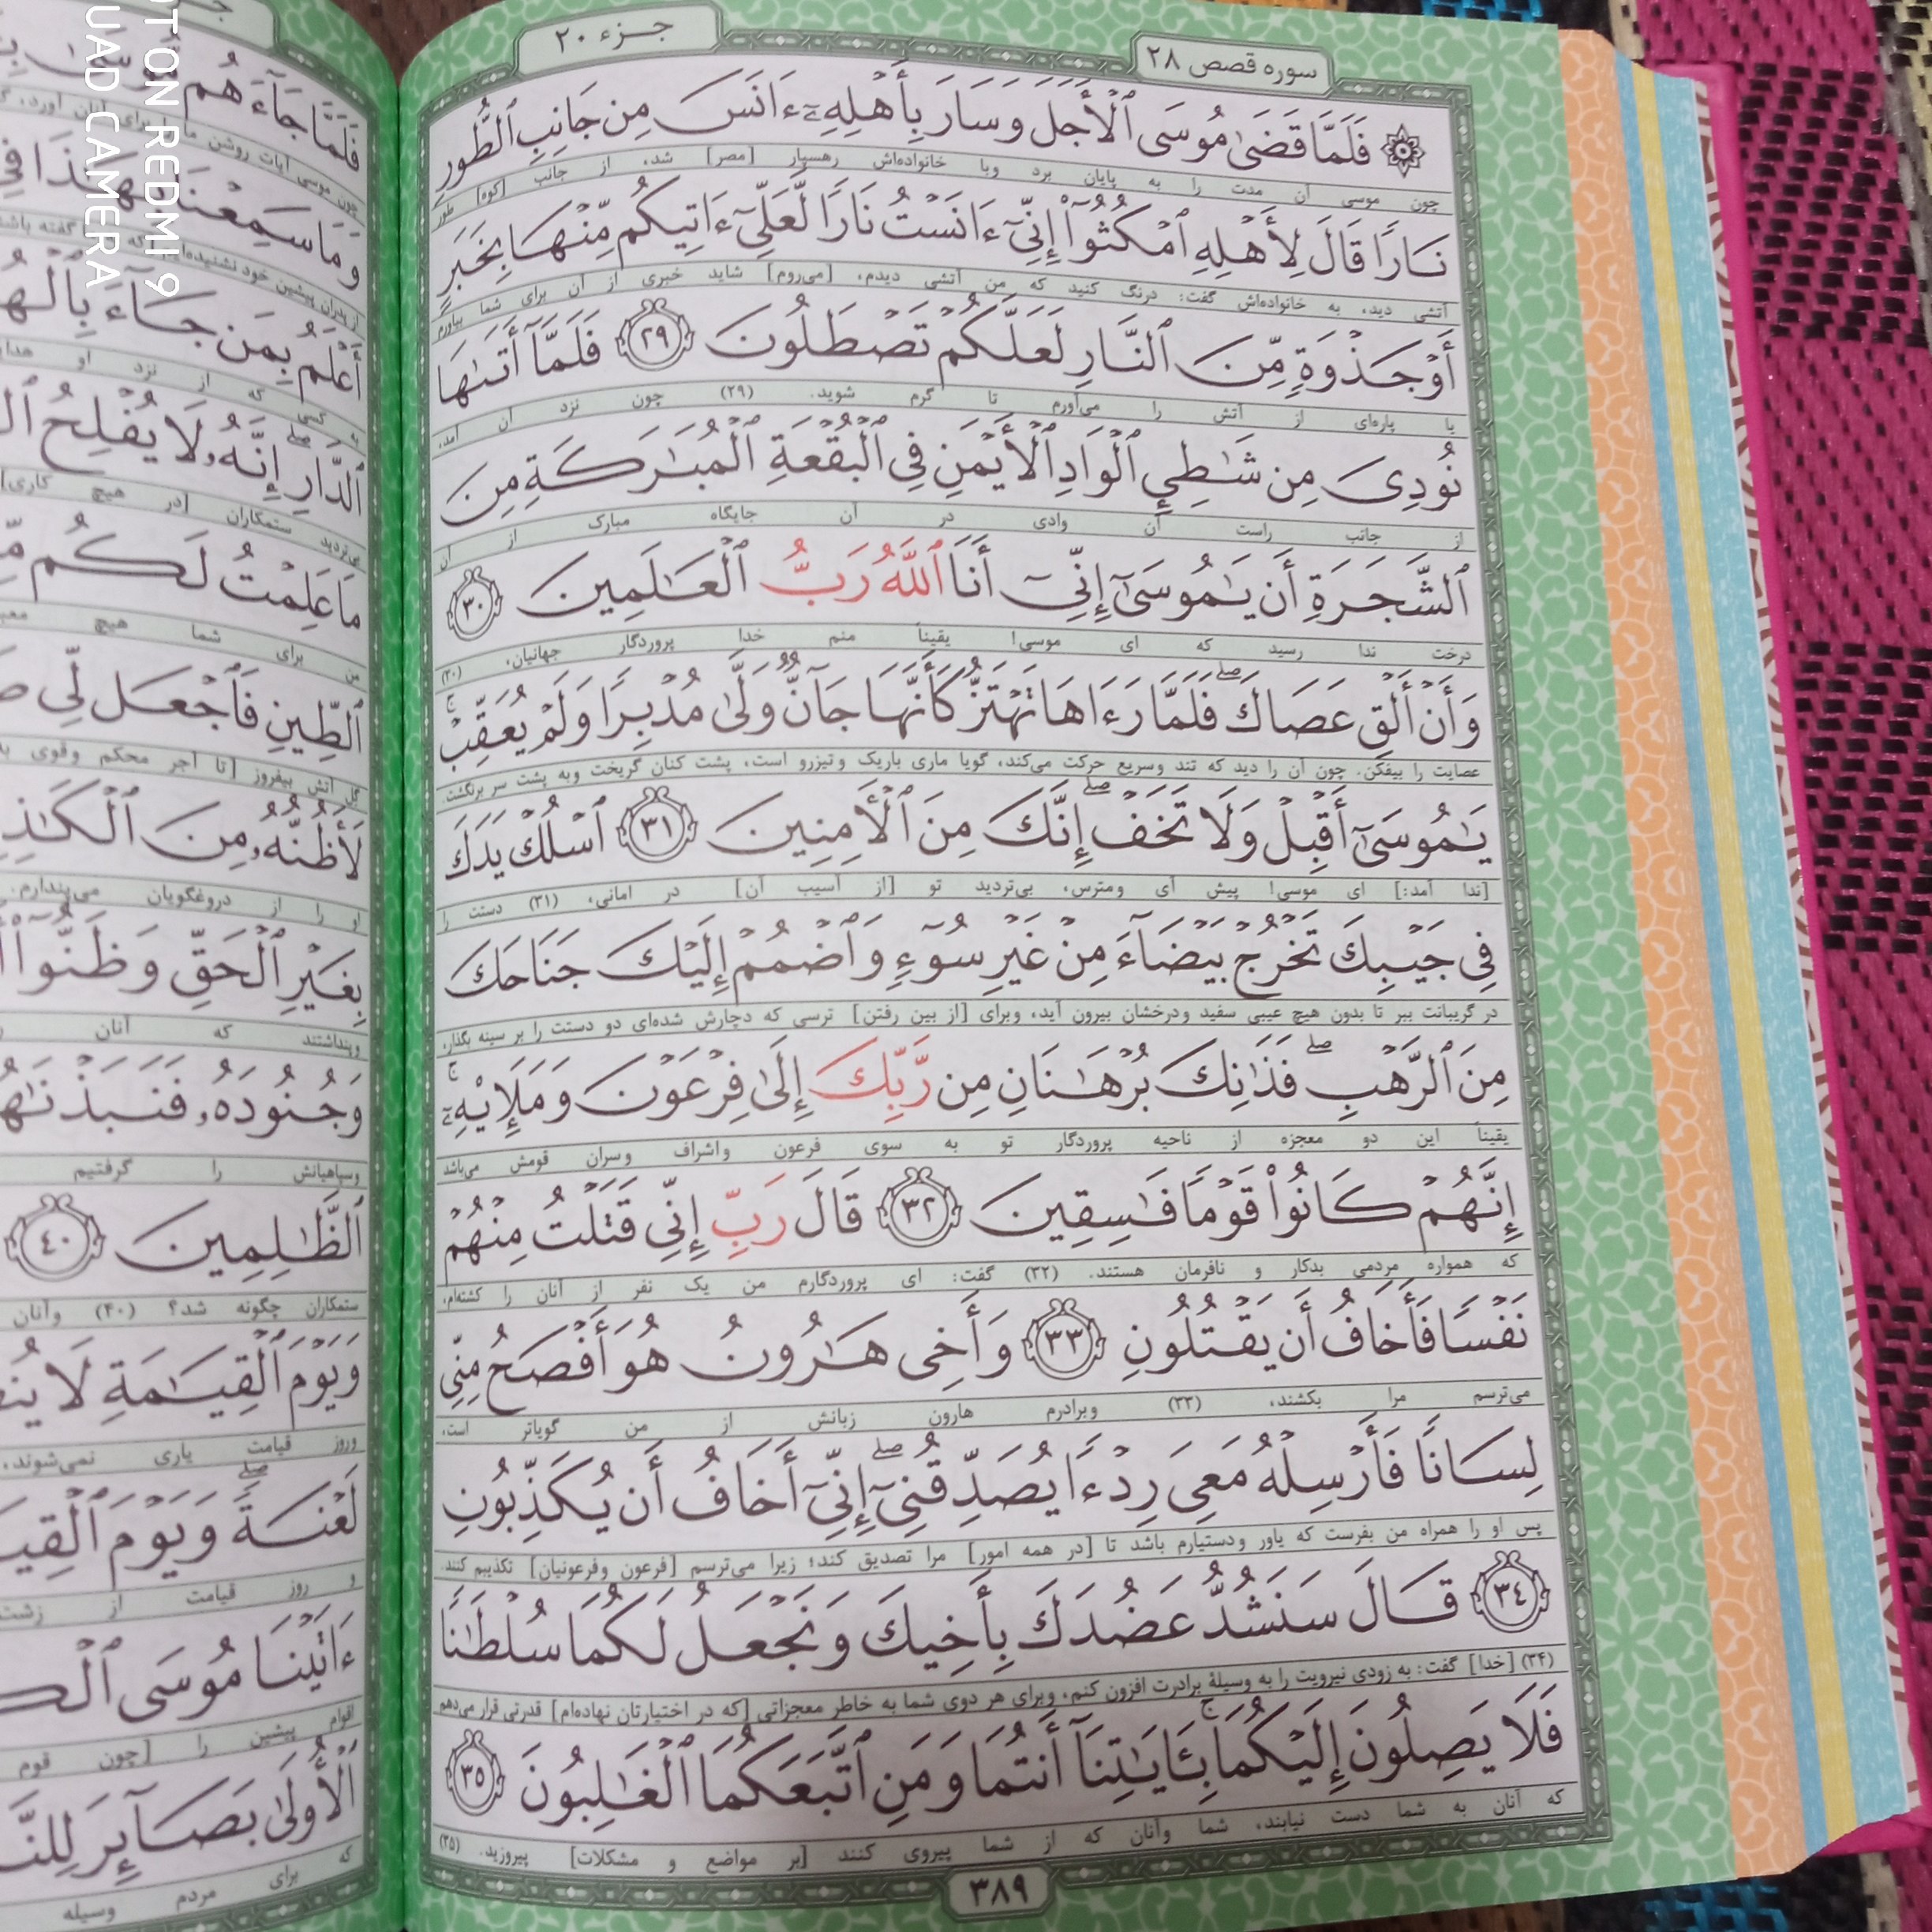 سوره قصص ۲۸
جزء ۲۰
۞ فَلَمَّا قَضَىٰ مُوسَى ٱلْأَجَلَ وَسَارَ بِأَهْلِهِۦٓ ءَانَسَ مِن جَانِبِ ٱلطُّورِ
چون موسی آن مدت را به پایان برد وبا خانواده‌اش رهسپار [مصر] شد، از جانب [کوه] طور
نَارًا قَالَ لِأَهْلِهِ ٱمْكُثُوٓا۟ إِنِّىٓ ءَانَسْتُ نَارًا لَّعَلِّىٓ ءَاتِيكُم مِّنْهَا بِخَبَرٍ
آتشی دید، به خانواده‌اش گفت: درنگ کنید که من آتشی دیدم، [می‌روم] شاید خبری از آن برای شما بیاورم
أَوْ جَذْوَةٍ مِّنَ ٱلنَّارِ لَعَلَّكُمْ تَصْطَلُونَ ﴿٢٩﴾ فَلَمَّآ أَتَىٰهَا
یا پاره‌ای از آتش را می‌آورم تا گرم شوید. (۲۹) چون نزد آن آمد،
نُودِىَ مِن شَٰطِئِ ٱلْوَادِ ٱلْأَيْمَنِ فِى ٱلْبُقْعَةِ ٱلْمُبَٰرَكَةِ مِنَ
از جانب راست آن وادی در آن جایگاه مبارک از آن
ٱلشَّجَرَةِ أَن يَٰمُوسَىٰٓ إِنِّىٓ أَنَا ٱللَّهُ رَبُّ ٱلْعَٰلَمِينَ ﴿٣٠﴾
درخت ندا رسید که ای موسی! یقیناً منم خدا پروردگار جهانیان، (۳۰)
وَأَنْ أَلْقِ عَصَاكَ ۖ فَلَمَّا رَءَاهَا تَهْتَزُّ كَأَنَّهَا جَآنٌّ وَلَّىٰ مُدْبِرًا وَلَمْ يُعَقِّبْ ۚ
عصایت را بیفکن. چون آن را دید که تند وسریع حرکت می‌کند، گویا ماری باریک وتیزرو است، پشت کنان گریخت وبه پشت سر برنگشت.
يَٰمُوسَىٰٓ أَقْبِلْ وَلَا تَخَفْ ۖ إِنَّكَ مِنَ ٱلْأَمِنِينَ ﴿٣١﴾ ٱسْلُكْ يَدَكَ
[ندا آمد:] ای موسی! پیش آی ومترس، بی‌تردید تو [از آسیب آن] در امانی، (۳۱) دستت را
فِى جَيْبِكَ تَخْرُجْ بَيْضَآءَ مِنْ غَيْرِ سُوٓءٍ وَٱضْمُمْ إِلَيْكَ جَنَاحَكَ
در گریبانت ببر تا بدون هیچ عیبی سفید ودرخشان بیرون آید، وبرای [از بین رفتن] ترسی که دچارش شده‌ای دو دستت را بر سینه بگذار،
مِنَ ٱلرَّهْبِ ۖ فَذَٰنِكَ بُرْهَٰنَانِ مِن رَّبِّكَ إِلَىٰ فِرْعَوْنَ وَمَلَإِيهِۦٓ ۚ
یقیناً این دو معجزه از ناحیه پروردگار تو به سوی فرعون واشراف وسران قومش می‌باشد
إِنَّهُمْ كَانُوا۟ قَوْمًا فَٰسِقِينَ ﴿٣٢﴾ قَالَ رَبِّ إِنِّى قَتَلْتُ مِنْهُمْ
که همواره مردمی بدکار و نافرمان هستند. (۳۲) گفت: ای پروردگارم من یک نفر از آنان را کشته‌ام،
نَفْسًا فَأَخَافُ أَن يَقْتُلُونِ ﴿٣٣﴾ وَأَخِى هَٰرُونُ هُوَ أَفْصَحُ مِنِّى
می‌ترسم مرا بکشند، (۳۳) وبرادرم هارون زبانش از من گویاتر است،
لِسَانًا فَأَرْسِلْهُ مَعِىَ رِدْءًا يُصَدِّقُنِىٓ ۖ إِنِّىٓ أَخَافُ أَن يُكَذِّبُونِ
پس او را همراه من بفرست که یاور ودستیارم باشد تا [در همه امور] مرا تصدیق کند؛ زیرا می‌ترسم [فرعون وفرعونیان] تکذیبم کنند.
﴿٣٤﴾ قَالَ سَنَشُدُّ عَضُدَكَ بِأَخِيكَ وَنَجْعَلُ لَكُمَا سُلْطَٰنًا
(۳۴) [خدا] گفت: به زودی نیرویت را به وسیلهٔ برادرت افزون کنم، وبرای هر دوی شما به خاطر معجزاتی [که در اختیارتان نهاده‌ام] قدرتی قرار می‌دهم
فَلَا يَصِلُونَ إِلَيْكُمَا ۚ بِـَٔايَٰتِنَآ أَنتُمَا وَمَنِ ٱتَّبَعَكُمَا ٱلْغَٰلِبُونَ ﴿٣٥﴾
که آنان به شما دست نیابند، شما وآنان که از شما پیروی کنند [بر مواضع و مشکلات] پیروزید. (۳۵)
۳۸۹
فَلَمَّا جَآءَهُم
چون موسی آیات روشن ما را برای آنان آورد،
وَمَا سَمِعْنَا بِهَٰذَا فِى
از پدران پیشین خود نشنیده‌ایم که گفته باشد
أَعْلَمُ بِمَن جَآءَ
به کسی که از نزد او
ٱلدَّارِ ۖ إِنَّهُۥ لَا يُفْلِحُ
بی‌تردید ستمکاران [در هیچ کاری]
مَا عَلِمْتُ لَكُم
من برای شما هیچ
ٱلطِّينِ فَٱجْعَل لِّى
گل آتش بیفروز [تا آجر محکم وقوی
لَأَظُنُّهُۥ مِنَ
او را از دروغگویان می‌پندارم.
بِغَيْرِ ٱلْحَقِّ وَظَنُّوٓا۟
وپنداشتند که آنان
وَجُنُودَهُۥ فَنَبَذْنَٰهُمْ
وسپاهیانش را گرفتیم
ٱلظَّٰلِمِينَ ﴿٤٠﴾
ستمکاران چگونه شد؟ (۴۰) وآنان
وَيَوْمَ ٱلْقِيَٰمَةِ لَا
وروز قیامت یاری نمی‌شوند،
لَعْنَةً ۖ وَيَوْمَ
و روز قیامت از
ءَاتَيْنَا مُوسَى
اقوام پیشین را [چون قوم
ٱلْأُولَىٰ بَصَآئِرَ
که برای مردم وسیله
OT ON REDMI 9
UAD CAMERA